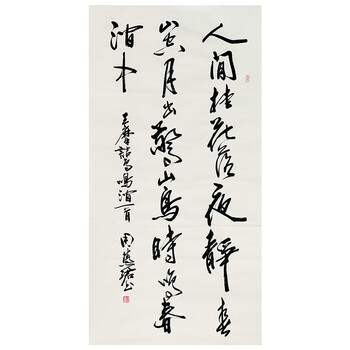 人闲桂花落夜静春
山空月出惊山鸟时鸣春
涧中
王摩诘鸟鸣涧一首 周慧珺书